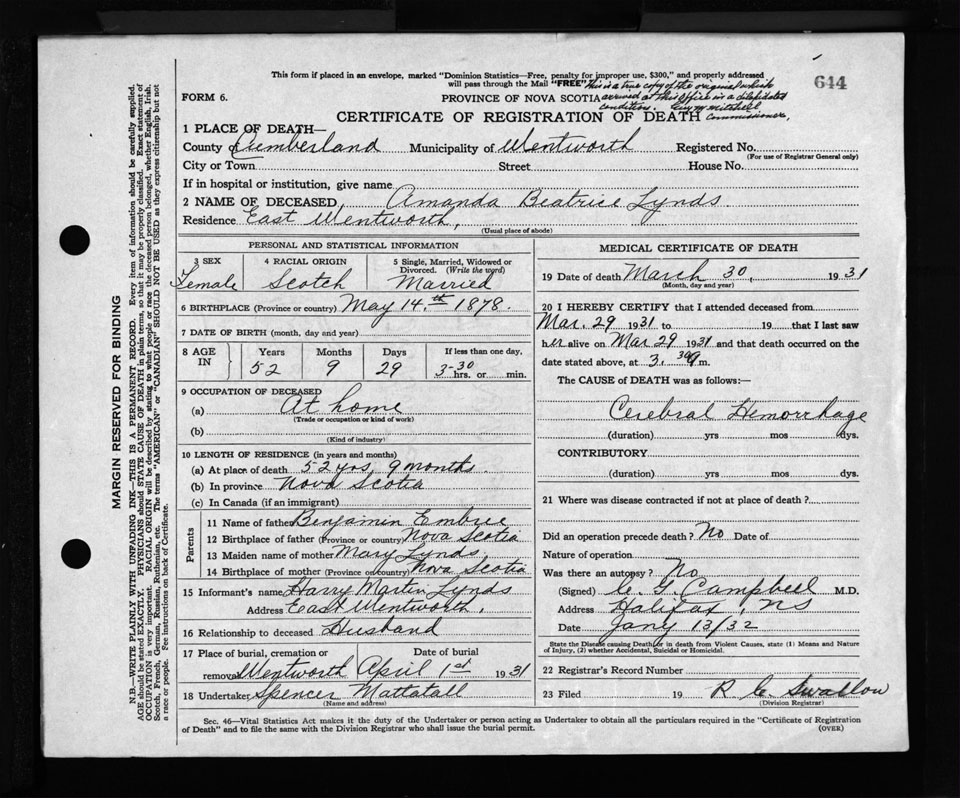 This form if placed in an envelope, marked "Dominion Statistics—Free, penalty for improper use, $300," and properly addressed
will pass through the Mail "FREE" This is a true copy of the original which
644
FORM 6. PROVINCE OF NOVA SCOTIA arrived at this office in a dilapidated
condition. Guy M Mitchell
CERTIFICATE OF REGISTRATION OF DEATH Commissioner,
1 PLACE OF DEATH—
County of Cumberland Municipality of Wentworth Registered No.
(For use of Registrar General only)
City or Town Street House No.
If in hospital or institution, give name
2 NAME OF DECEASED, Amanda Beatrice Lynds
Residence East Wentworth,
(Usual place of abode)
PERSONAL AND STATISTICAL INFORMATION
3 SEX 4 RACIAL ORIGIN 5 Single, Married, Widowed or
Divorced. (Write the word)
Female Scotch Married
6 BIRTHPLACE (Province or country) May 14.th 1878.
7 DATE OF BIRTH (month, day and year)
8 AGE IN Years Months Days If less than one day,
52 9 29 3-30 hrs. or min.
9 OCCUPATION OF DECEASED
(a) At home
(Trade or occupation or kind of work)
(b)
(Kind of industry)
10 LENGTH OF RESIDENCE (in years and months)
(a) At place of death 52 yrs, 9 months.
(b) In province Nova Scotia
(c) In Canada (if an immigrant)
Parents
11 Name of father Benjamin Embree
12 Birthplace of father (Province or country) Nova Scotia
13 Maiden name of mother Mary Lynds.
14 Birthplace of mother (Province or country) Nova Scotia
15 Informant's name Harry Martin Lynds
Address East Wentworth,
16 Relationship to deceased Husband
17 Place of burial, cremation or Date of burial
removal Wentworth April 1st 1931
18 Undertaker Spencer Mattatall
(Name and address)
MEDICAL CERTIFICATE OF DEATH
19 Date of death March 30, 1931
(Month, day and year)
20 I HEREBY CERTIFY that I attended deceased from
Mar. 29 1931 to 19 that I last saw
her alive on Mar 29 1931 and that death occurred on the
date stated above, at 3.30 m.
The CAUSE of DEATH was as follows:—
Cerebral Hemorrhage
(duration) yrs mos dys.
CONTRIBUTORY
(duration) yrs mos dys.
21 Where was disease contracted if not at place of death ?
Did an operation precede death ? No Date of
Nature of operation
Was there an autopsy ? No
(Signed) C. G. Campbell M.D.
Address Halifax, NS
Date Jany 13/32
State the Disease causing Death, or in death from Violent Causes, state (1) Means and Nature
of Injury, (2) whether Accidental, Suicidal or Homicidal.
22 Registrar's Record Number
23 Filed 19 R C. Swallow
(Division Registrar)
Sec. 46—Vital Statistics Act makes it the duty of the Undertaker or person acting as Undertaker to obtain all the particulars required in the "Certificate of Registration
of Death" and to file the same with the Division Registrar who shall issue the burial permit. (OVER)
MARGIN RESERVED FOR BINDING
N.B.—WRITE PLAINLY WITH UNFADING INK—THIS IS A PERMANENT RECORD. Every item of information should be carefully supplied.
AGE should be stated EXACTLY. PHYSICIANS should STATE CAUSE OF DEATH in plain terms, so that it may be properly classified. Exact statement of
OCCUPATION is very important. RACIAL ORIGIN will be described by stating to what people or race the deceased person belonged, whether English, Irish,
Scotch, French, German, Russian, Ruthenian, etc. The terms "AMERICAN" or "CANADIAN" SHOULD NOT BE USED as they express citizenship but not
a race or people. See instructions on back of Certificate.